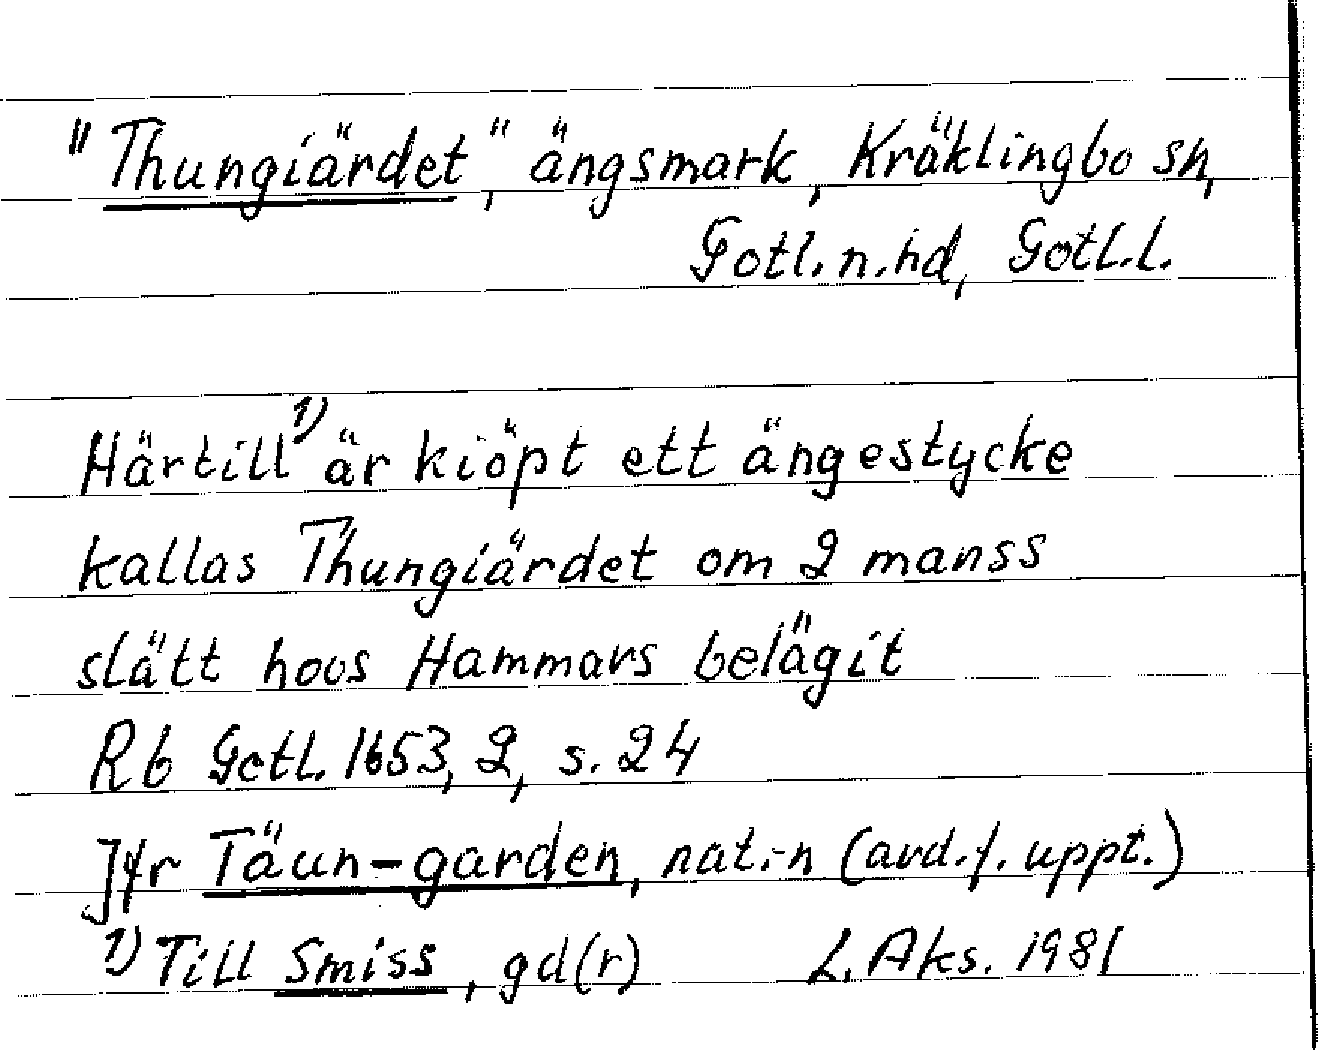 "Thungiärdet", ängsmark, Kräklingbo sn,
Gotl. n. hd, Gotl. l.
Härtill 1) är kiöpt ett ängestycke
kallas Thungiärdet om 2 manss
slätt hoos Hammars belägit
Rb Gotl. 1653, 2, s. 24
Jfr Täun-garden, nat.-n (avd. f. uppt.)
1) Till Smiss, gd(r) L. Aks. 1981